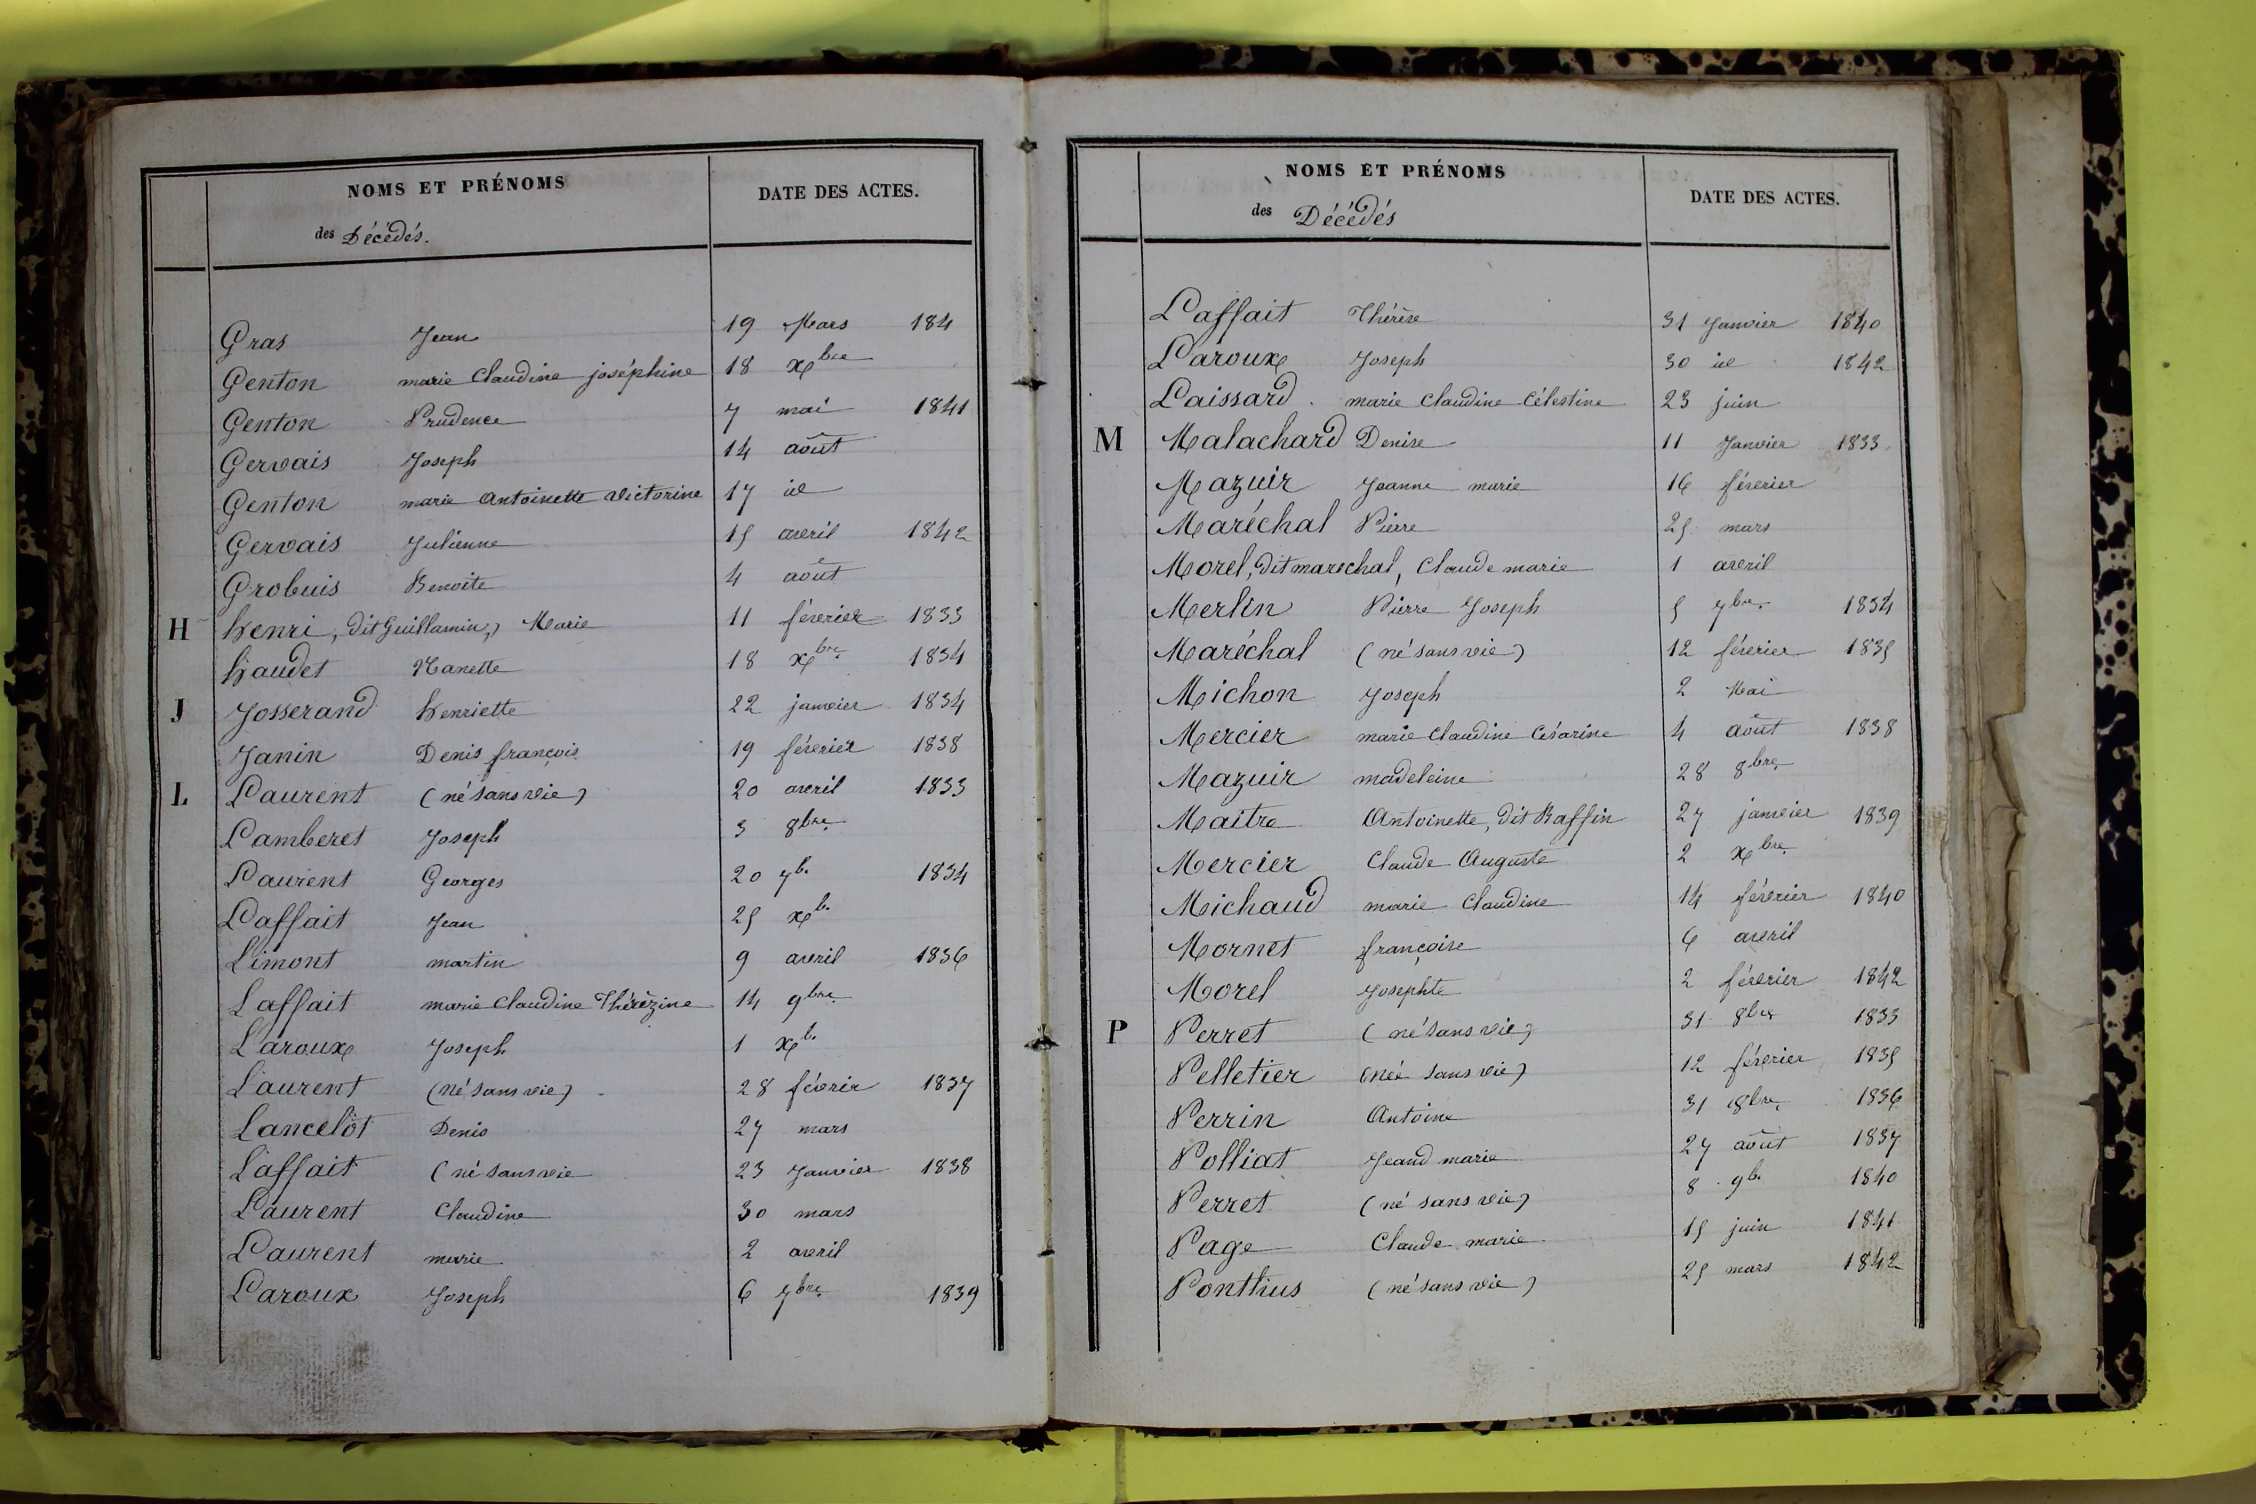 NOMS ET PRÉNOMS
DATE DES ACTES.
des Décédés.
Gras Jean 19 Mars 184
Genton marie Claudine joséphine 18 xbre
Genton Prudence 7 mai 1841
Gervais Joseph 14 août
Genton marie Antoinette Victorine 17 id
Gervais Julienne 15 avril 1842
Grobuis Benoite 4 août
H Henri, dit Guillamin, Marie 11 février 1833
Haudet Nanette 18 xbre 1834
J Josserand henriette 22 janvier 1834
Janin Denis françois 19 février 1838
L Laurent (né sans vie) 20 avril 1833
Lamberet Joseph 3 8bre
Laurent Georges 20 7b. 1834
Laffait Jean 25 xb.
Limont martin 9 avril 1836
Laffait marie Claudine Thérèzine 14 9bre
Laroux Joseph 1 xb.
Laurent (né sans vie) 28 févrir 1837
Lancelot Denis 27 mars
Laffait (né sans vie 23 Janvier 1838
Laurent Claudine 30 mars
Laurent marie 2 avril
Laroux Joseph 6 7bre 1839
NOMS ET PRÉNOMS
DATE DES ACTES.
des Décédés
Laffait Thérèse 31 Janvier 1840
Laroux Joseph 30 id 1842
Laissard marie Claudine Célestine 23 juin
M Malachard Denise 11 Janvier 1833
Mazuir Jeanne marie 16 février
Maréchal Pierre 25 mars
Morel, dit marechal, Claude marie 1 avril
Merlin Pierre Joseph 5 7bre 1834
Maréchal (né sans vie) 12 février 1835
Michon Joseph 2 Mai
Mercier marie Claudine Césarine 4 août 1838
Mazuir madeleine 28 8bre
Maitre Antoinette, dit Raffin 27 janvier 1839
Mercier Claude Auguste 2 xbre
Michaud marie Claudine 14 février 1840
Mornet françoise 6 avril
Morel Josephte 2 février 1842
P Perret (né sans vie) 31 8bre 1833
Pelletier (née sans vie) 12 février 1835
Perrin Antoine 31 8bre 1836
Polliat Jeand marie 27 août 1837
Perret (né sans vie) 8 9b. 1840
Page Claude marie 15 juin 1841
Ponthus (né sans vie) 25 mars 1842